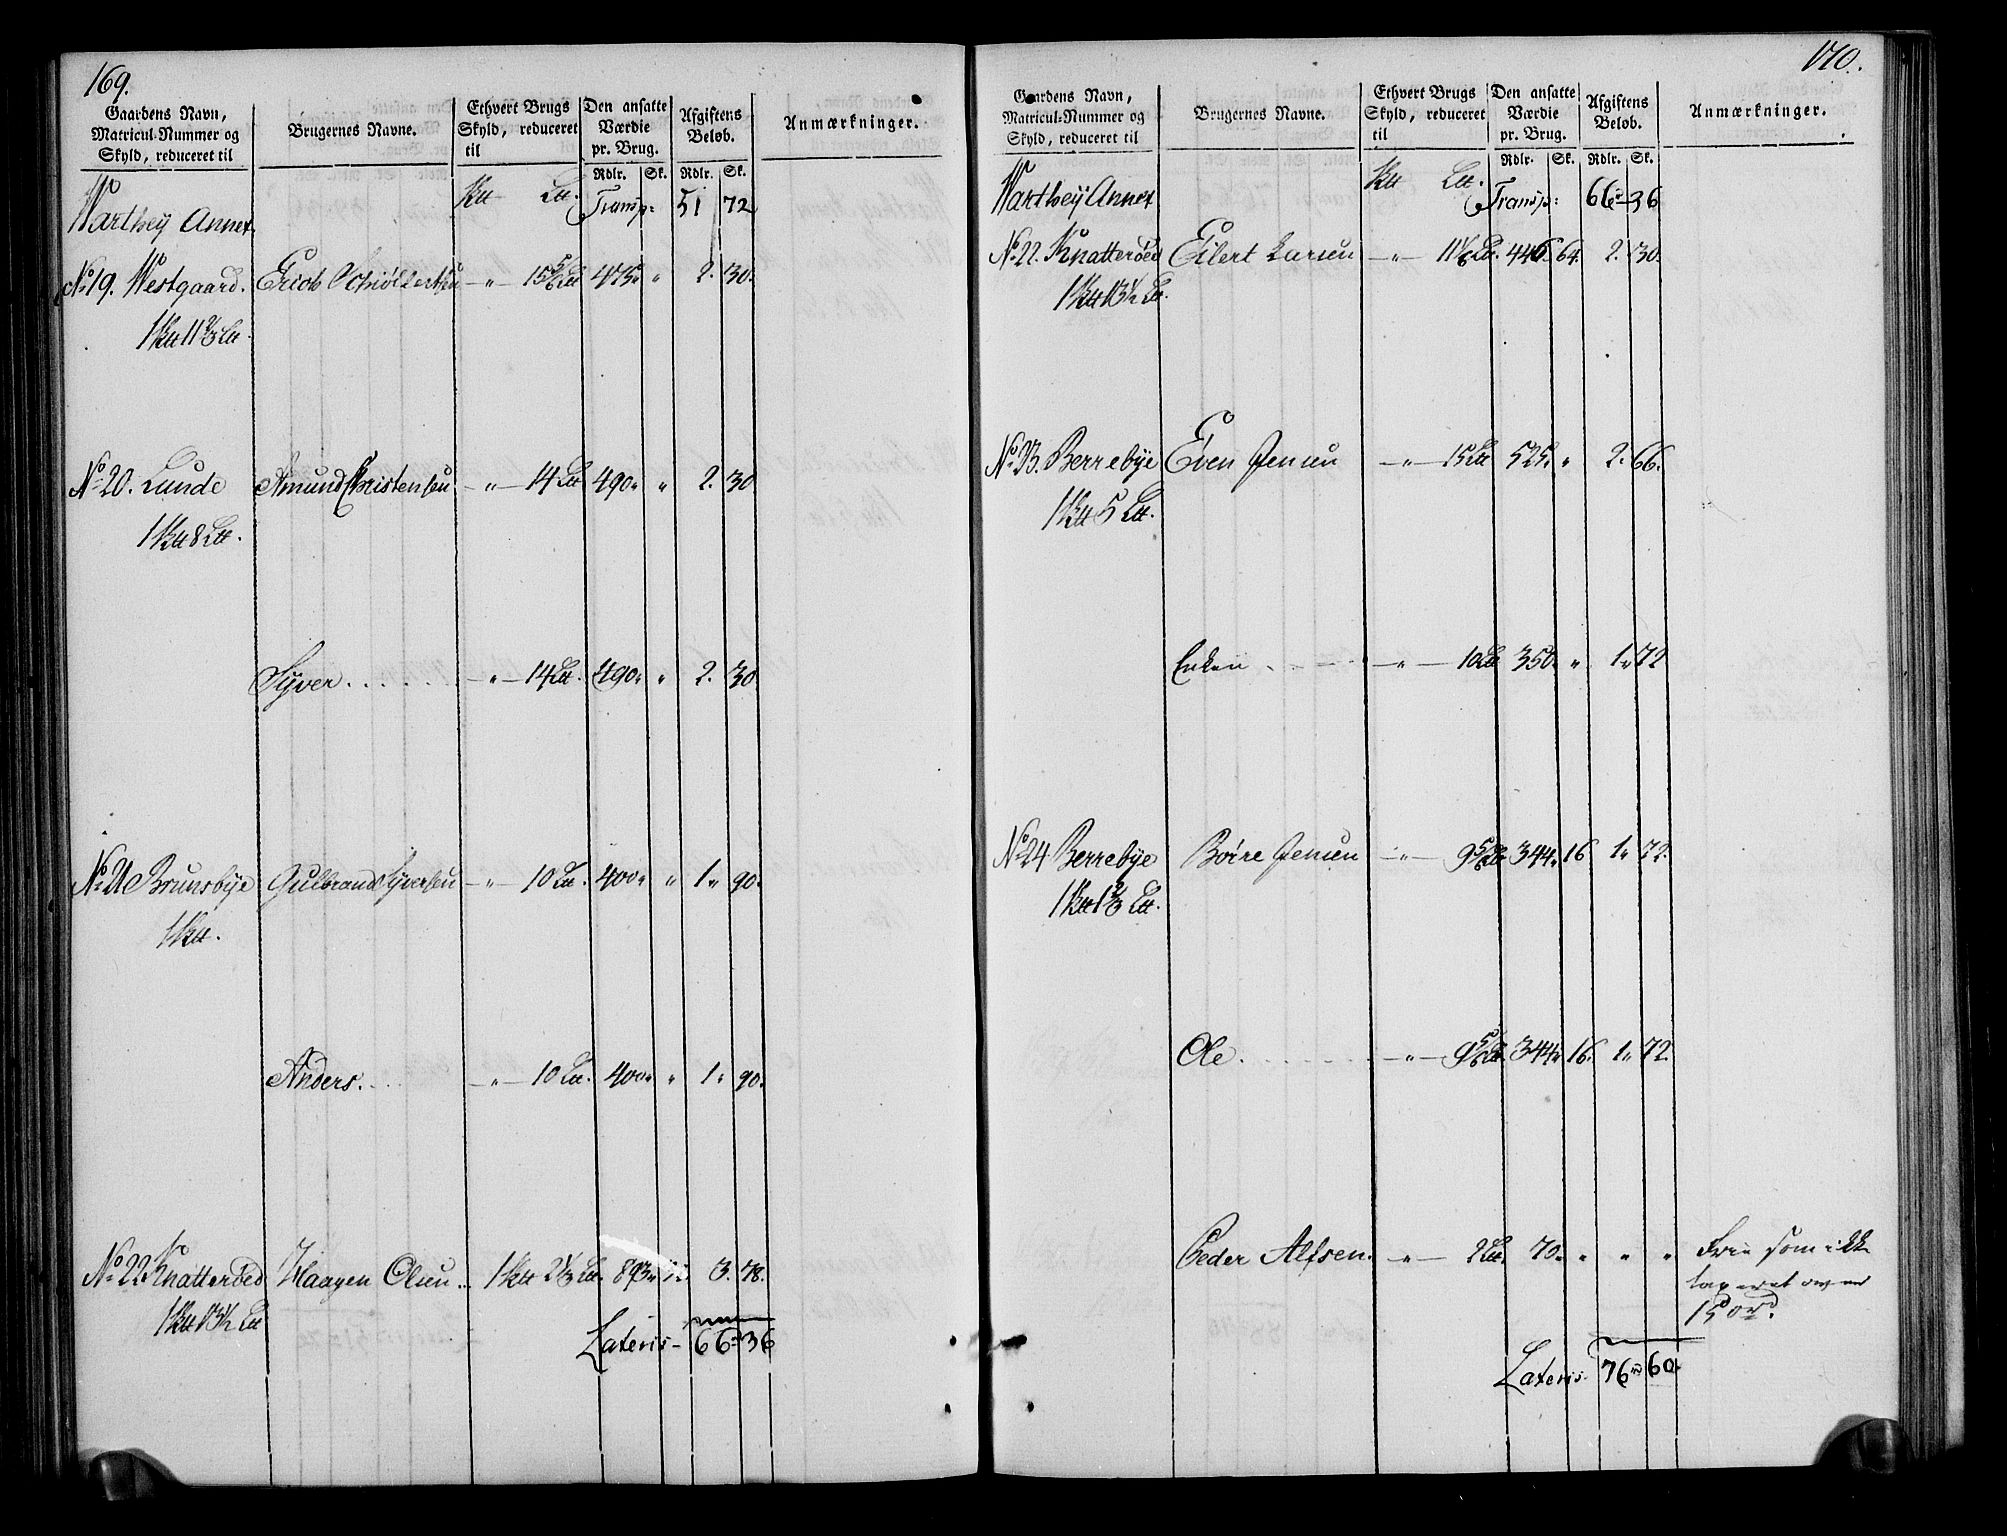 169.
Gaardens Navn, Matricul-Nummer og Skyld, reduceret til | Brugernes Navne. | Ethvert Brugs Skyld, reduceret til | Den ansatte Værdie pr. Brug. | Afgiftens Beløb. | Anmærkninger.
Rdlr. Sk. Rdlr. Sk.
Warthey Annex. Transp: 51 72
No 19. Westgaard. " 15 5/6 475 " 2. 30.
No 20. Lunde Amund Christensen " 14 490 " 2. 30
Syver " 14 490 " 2. 30.
No 21 Brunsbye Gulbrand Syversen " 10 400 " 1 " 90.
Anders. " 10 400 " 1 " 90.
No 22 Knatterød Haagen Olsen 3. 78.
Lateris 66 36
170.
Gaardens Navn, Matricul-Nummer og Skyld, reduceret til | Brugernes Navne. | Ethvert Brugs Skyld, reduceret til | Den ansatte Værdie pr. Brug. | Afgiftens Beløb. | Anmærkninger.
Rdlr. Sk. Rdlr. Sk.
Warthey Annex Transp: 66 36
No 22. Knatterød Eilert Larsen " 446. 64. 2. 30.
Berrebye Even Jensen " 15 525. " 2. 66.
Enken " 10 350. " 1 " 72
No 24 Berrebye Børre Jensen " 9 5/6 344 16 1 " 72.
Ole. " 9 5/6 344 16. 1 " 72.
Peder Alfsen. " 2 70 " " " Frie som ikke
taxeret over
150 rd.
Lateris 76 60